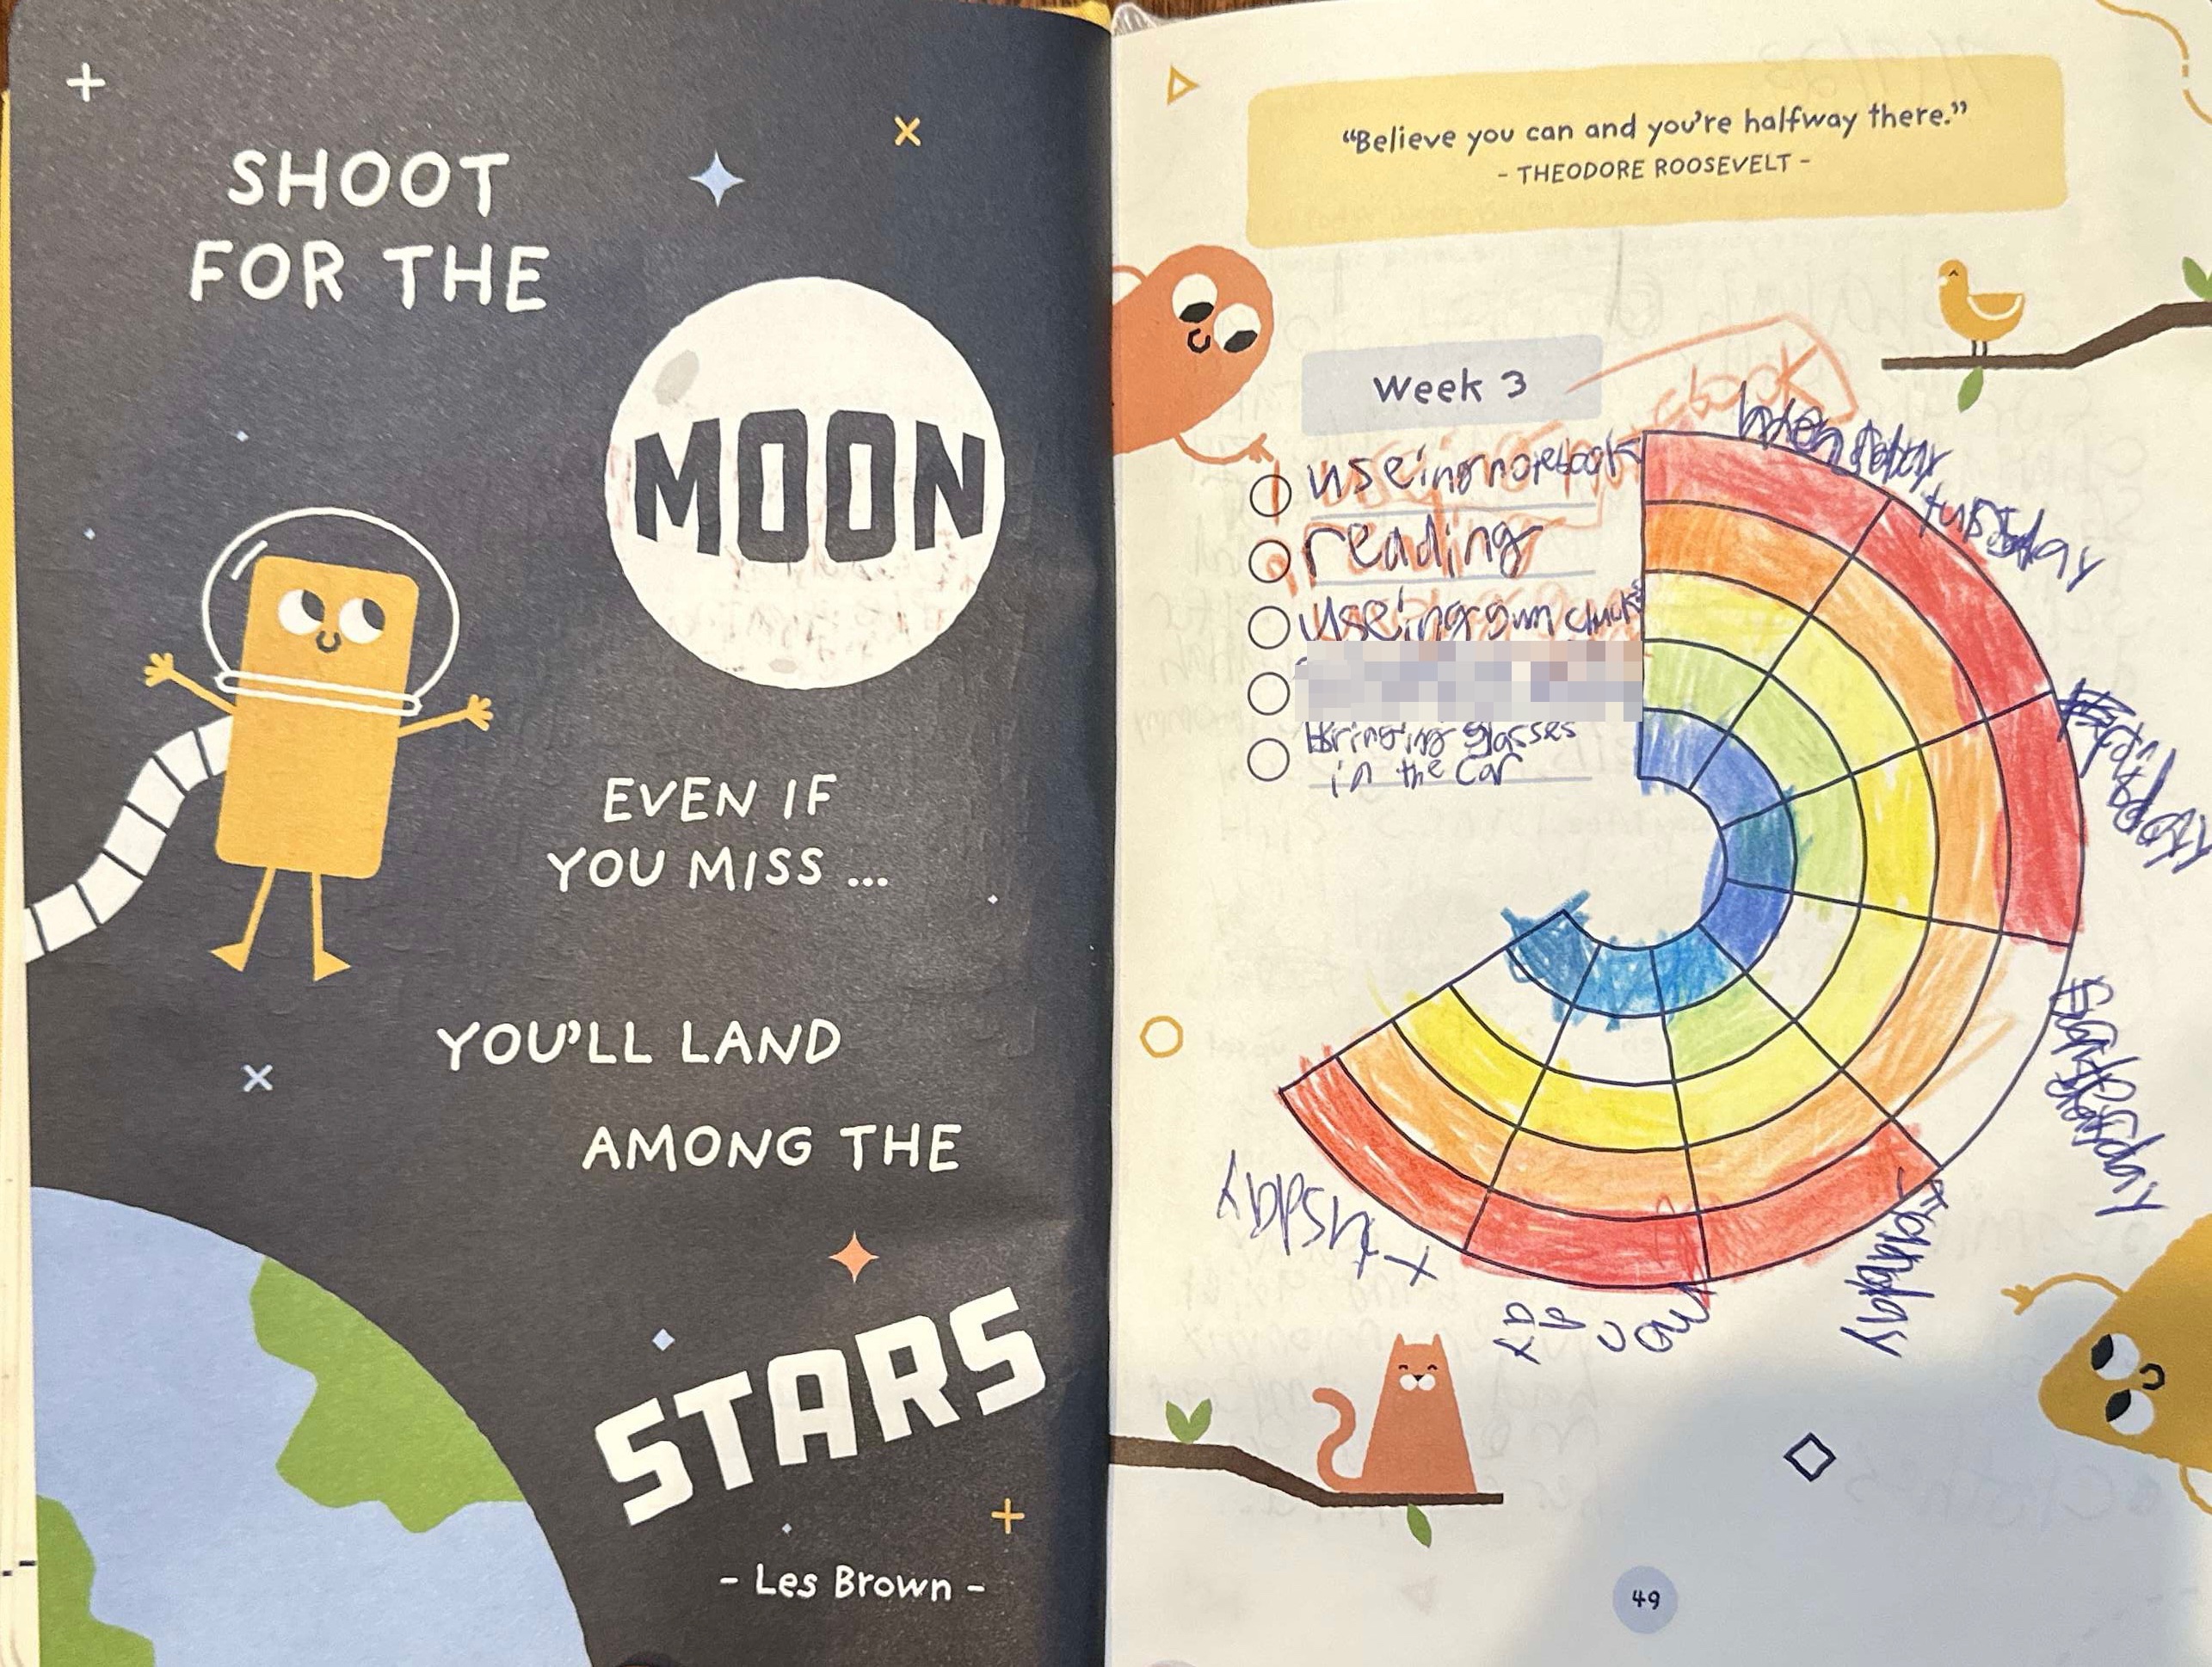 SHOOT
FOR THE
MOON
EVEN IF
YOU MISS ...
YOU'LL LAND
AMONG THE
STARS
- Les Brown -
“Believe you can and you're halfway there.”
- THEODORE ROOSEVELT -
Week 3
useing notebook
reading
useing
bringing glasses
in the car
tusday
monday
49